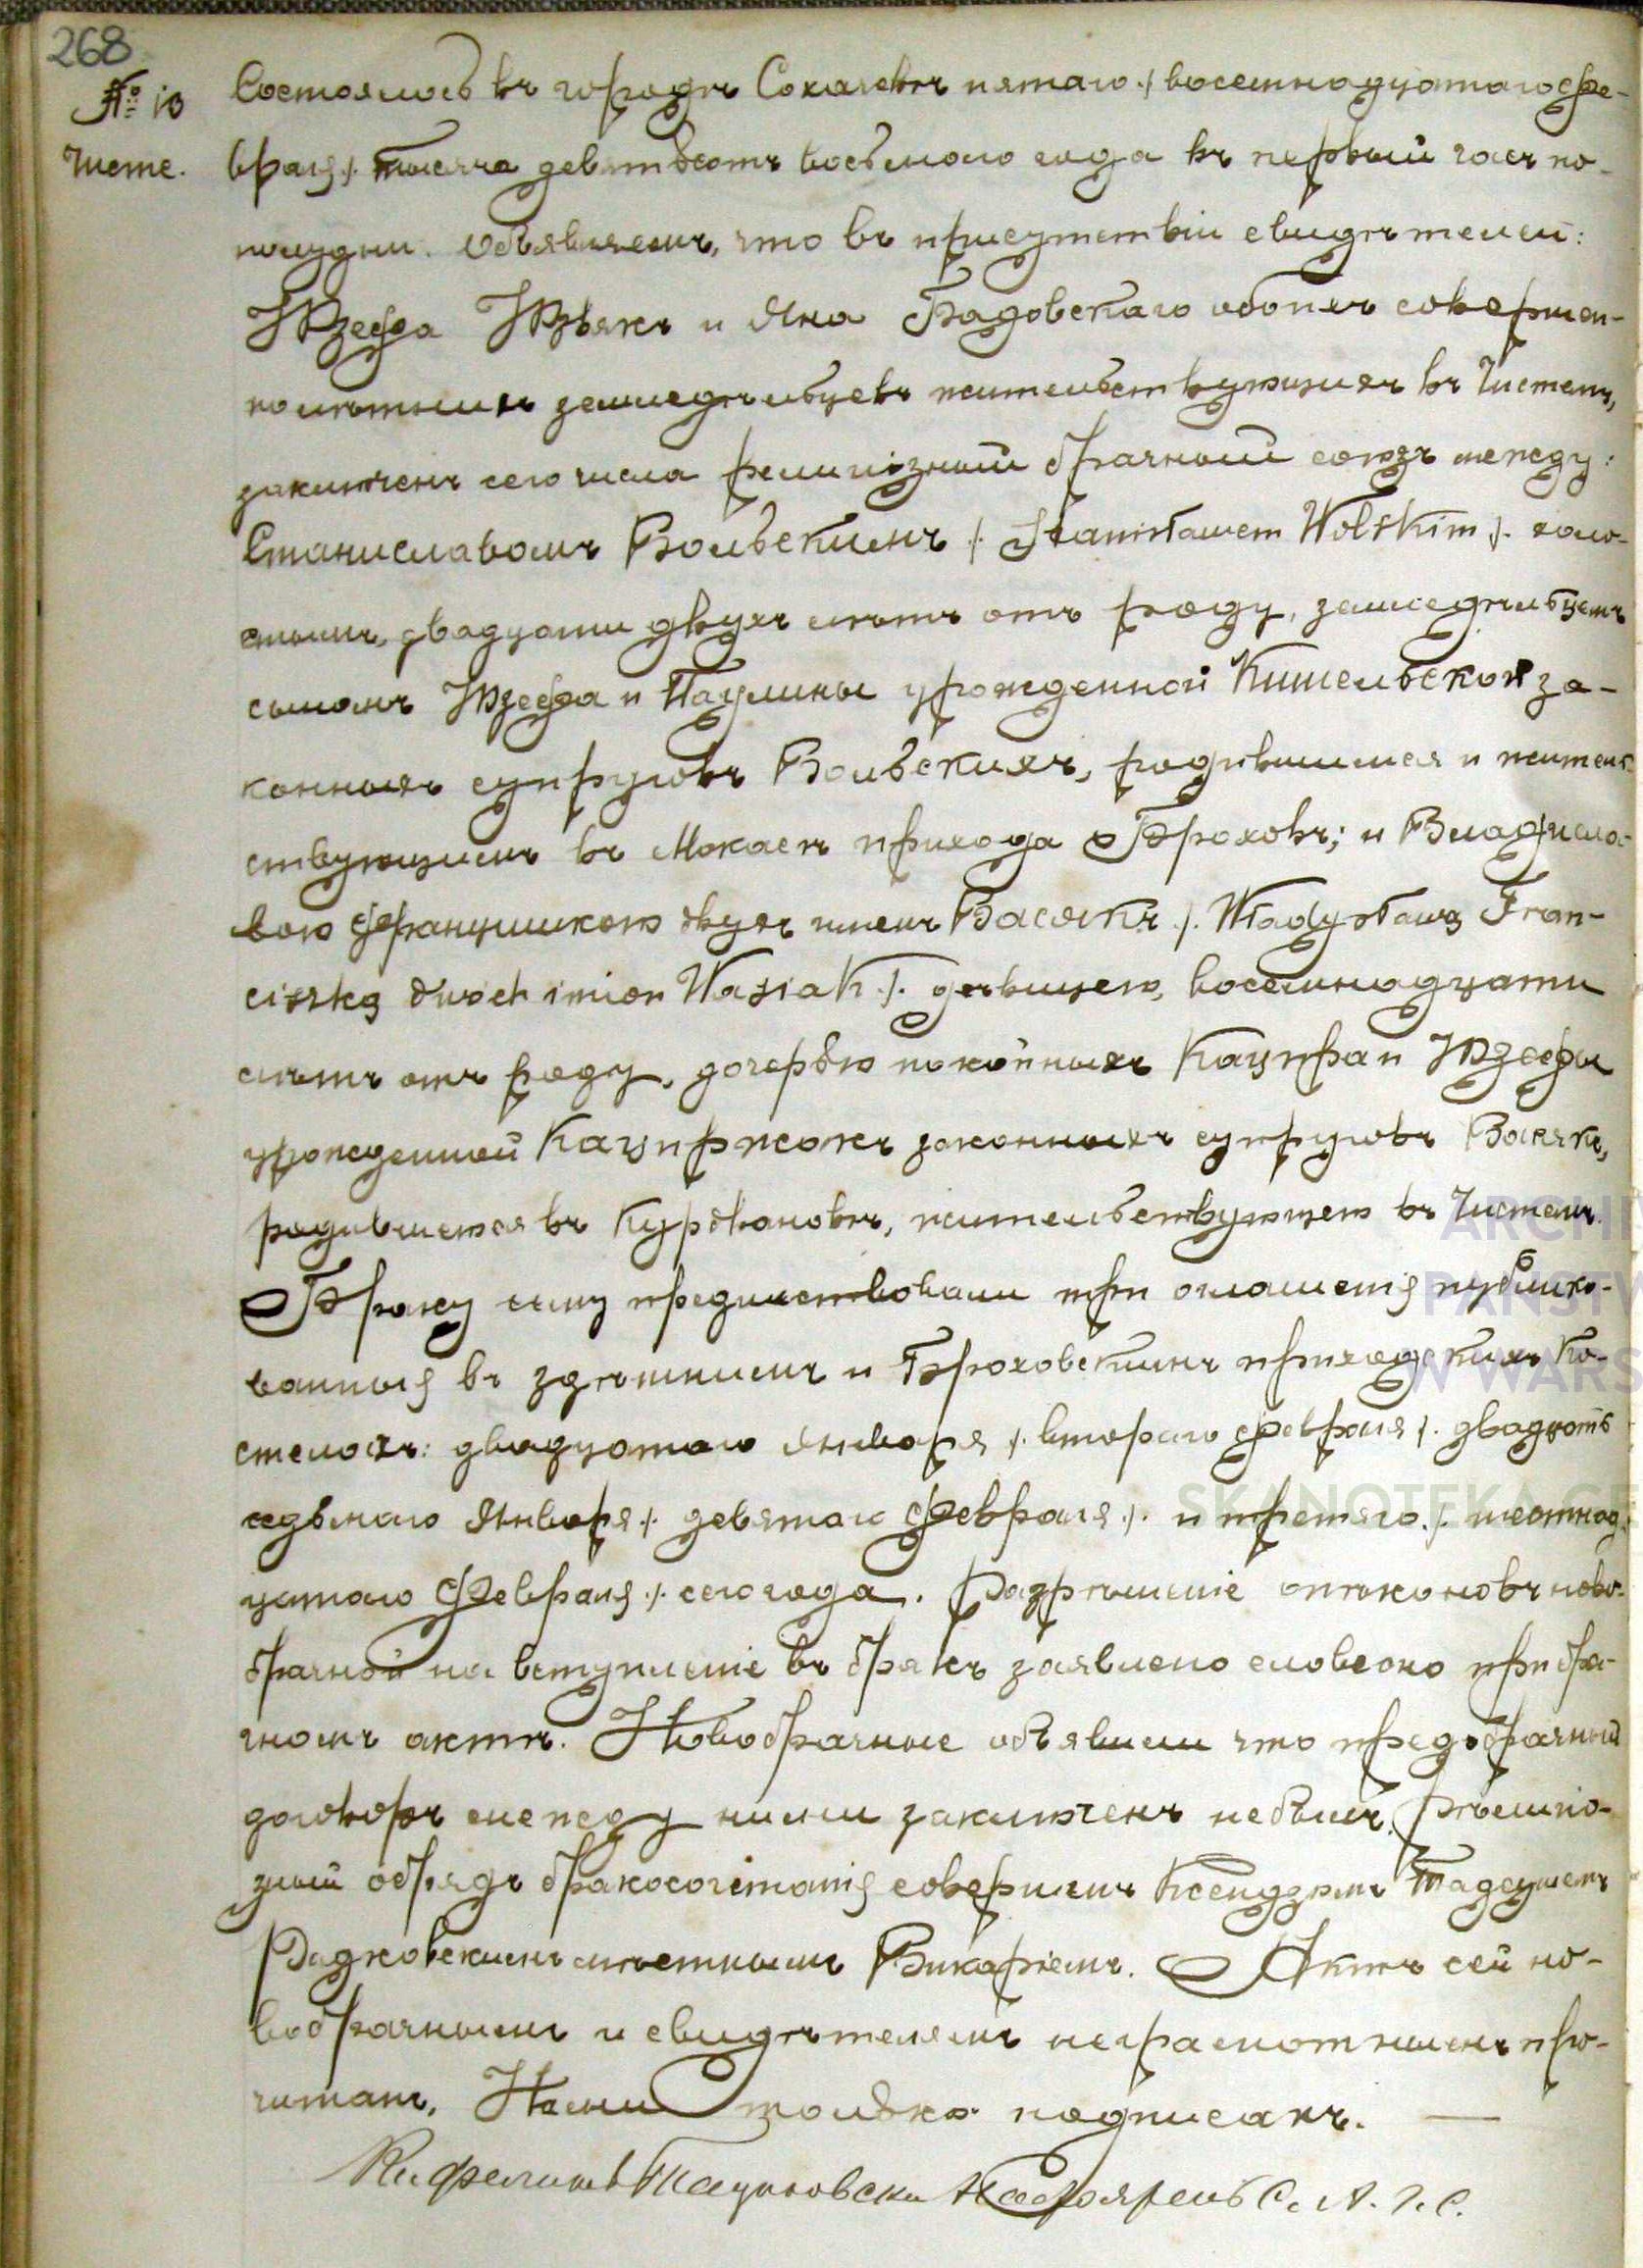 268
№ 10
Чисте.
Состоялось въ городѣ Сохачевѣ пятаго /. восемнадцатаго Фе-
враля ./. тысяча девятьсотъ восьмого года въ первый часъ по-
полудни. Объявляемъ, что въ присутствіи свидѣтелей:
Юзефа и Яна Бадовскаго обоихъ совершен-
нолѣтнихъ земледѣльцевъ жительствующихъ въ Чистемъ,
заключенъ сего числа религіозный брачный союзъ между:
Станиславомъ Вольскимъ /. Stanisławem Wolskim ./. холо-
стымъ, двадцати двухъ лѣтъ отъ роду, земледѣльцемъ
сыномъ Юзефа и Паулины урожденной Кишельской за-
конныхъ супруговъ Вольскихъ, родившимся и жительс-
ствующимъ въ Мокасѣ прихода Броховъ; и Владисла-
вою Францишкою двухъ именъ Васякъ /. Władysławą Fran-
ciszką dwóch imion Wasiak ./. дѣвицею, восемнадцати
лѣтъ отъ роду, дочерью покойныхъ Кацпра и Юзефы
урожденной Кацпржакъ законныхъ супруговъ Васякъ,
родившеюся въ Курдвановѣ, жительствующею въ Чистемъ.
Браку сему предшествовали три оглашенія публико-
ванныя въ здѣшнемъ и Броховскимъ приходскихъ Ко-
стелахъ: двадцатаго Января /. второго Февраля ./. двадцать
седьмаго Января /. девятаго Февраля ./. и третяго /. шестнад-
цатаго Февраля ./. сего года. Разрѣшеніе опекуновъ ново-
брачной на вступленіе въ бракъ заявлено словесно при бра-
чномъ актѣ. Новобрачные объявили что предобрачный
договоръ между ними заключенъ небылъ. Религіо-
зный обрядъ бракосочетанія совершенъ Ксендзомъ Тадеушемъ
Радковскимъ мѣстнымъ Викаріемъ. Актъ сей но-
вобрачнымъ и свидѣтелямъ неграмотнымъ про-
читанъ, Нами только подписанъ.
С. А. Г. С.
ARCHI
PAŃSTW
W WARS
SKANOTEKA GE